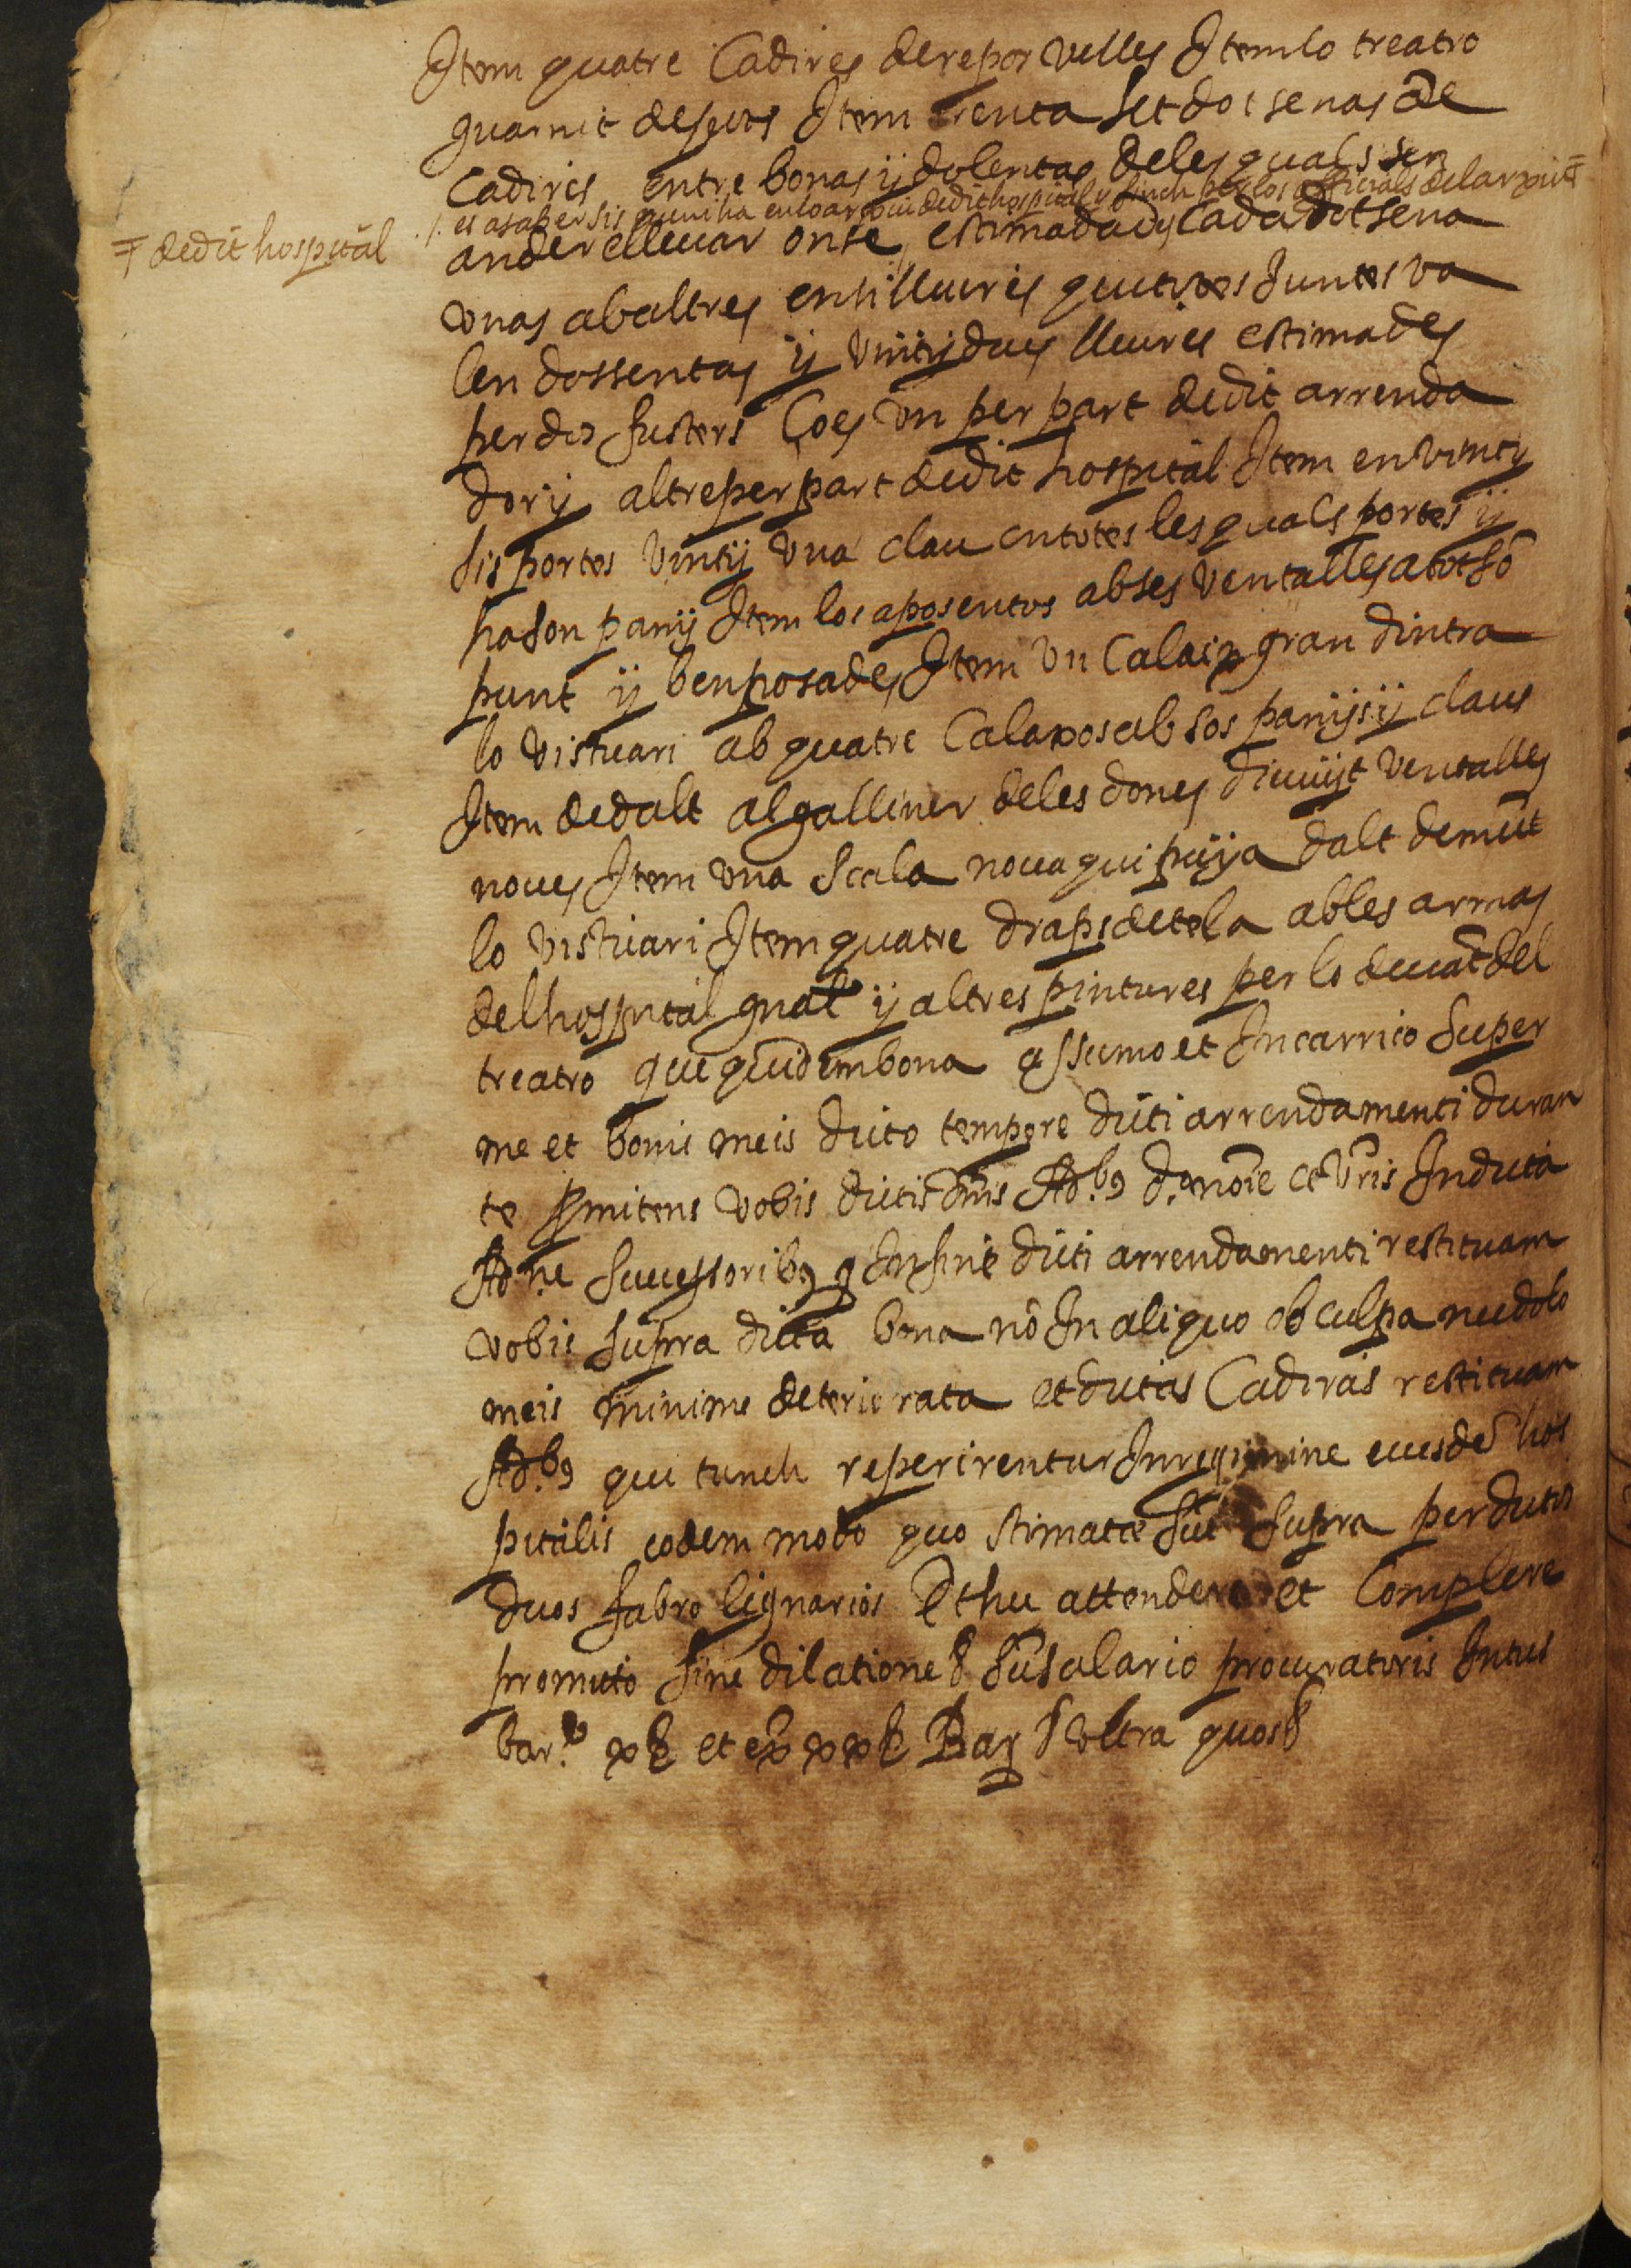 Item quatre Cadires de repos velles Item lo treatro
guarnit de fusts Item trenta set dotsenas de
Cadires entre bonas ÿ dolentas deles quals sen
./. es a saber sis quen ha en lo arxiu de dit hospital y sinch per los officials del arxiu =
= de dit hospital
an de rellevar onse, estimadas Cada dotsena
unas ab altres en sis lluires que totes Juntes va
len dossentas ÿ vintÿ dues lluires estimades
per dos fusters Ços un per part de dit arrenda
dor ÿ altre per part de dit hospital Item en vintÿ
sis portes vintÿ una clau en totes les quals portes ÿ
ha son panÿ Item los aposentos ab ses ventalles a tot sō
punt ÿ ben posades Item un Calaix gran dintra
lo vistuari ab quatre Calaxos ab sos panÿs ÿ claus
Item de dalt al galliner de les dones divuÿt ventalles
noues Item una scala noua qui puÿa dalt demūt
lo vistuari Item quatre draps de tela ab les armas
del hospital gnāl ÿ altres pintures per lo deuāt del
treatro que quidem bona assumo et Incarrico super
me et bonis meis dicto tempore dicti arrendamenti duran
te Pmitens vobis dictis Dnīs Adb9 do noīe et vrīs In dicta
Adne successoribq q In fine dicti arrendamenti restituam
vobis supra dicta bona nō In aliquo ob culpa neu dolo
meis minime deteriorata et dictas Cadiras restituam
Adb9 qui tunch reperirentur In regimine eiusdē hos
pitalis eodem modo quo stimatæ sūt supra per dictos
duos fabro lignarios Et hec attendere et Complere
promitto sine dilatione &c sū salario procuratoris Intus
barña x ß et ex xx ß Bar &c ultra quos &c